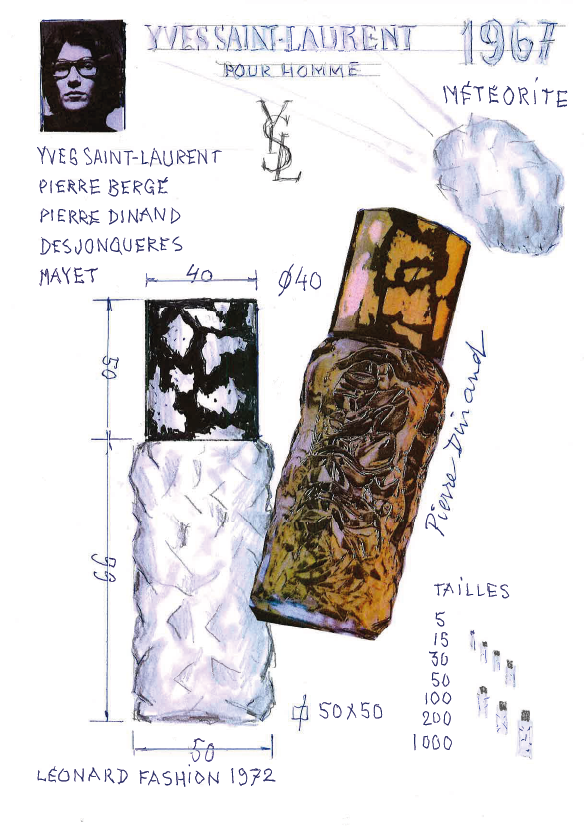 YVES SAINT-LAURENT 1967
POUR HOMME
MÉTÉORITE
YSL
YVES SAINT-LAURENT
PIERRE BERGÉ
PIERRE DINAND
DESJONQUERES
MAYET
40
Ø40
50
99
Pierre Dinand
TAILLES
5
15
30
50
100
200
1000
50X50
50
LÉONARD FASHION 1972